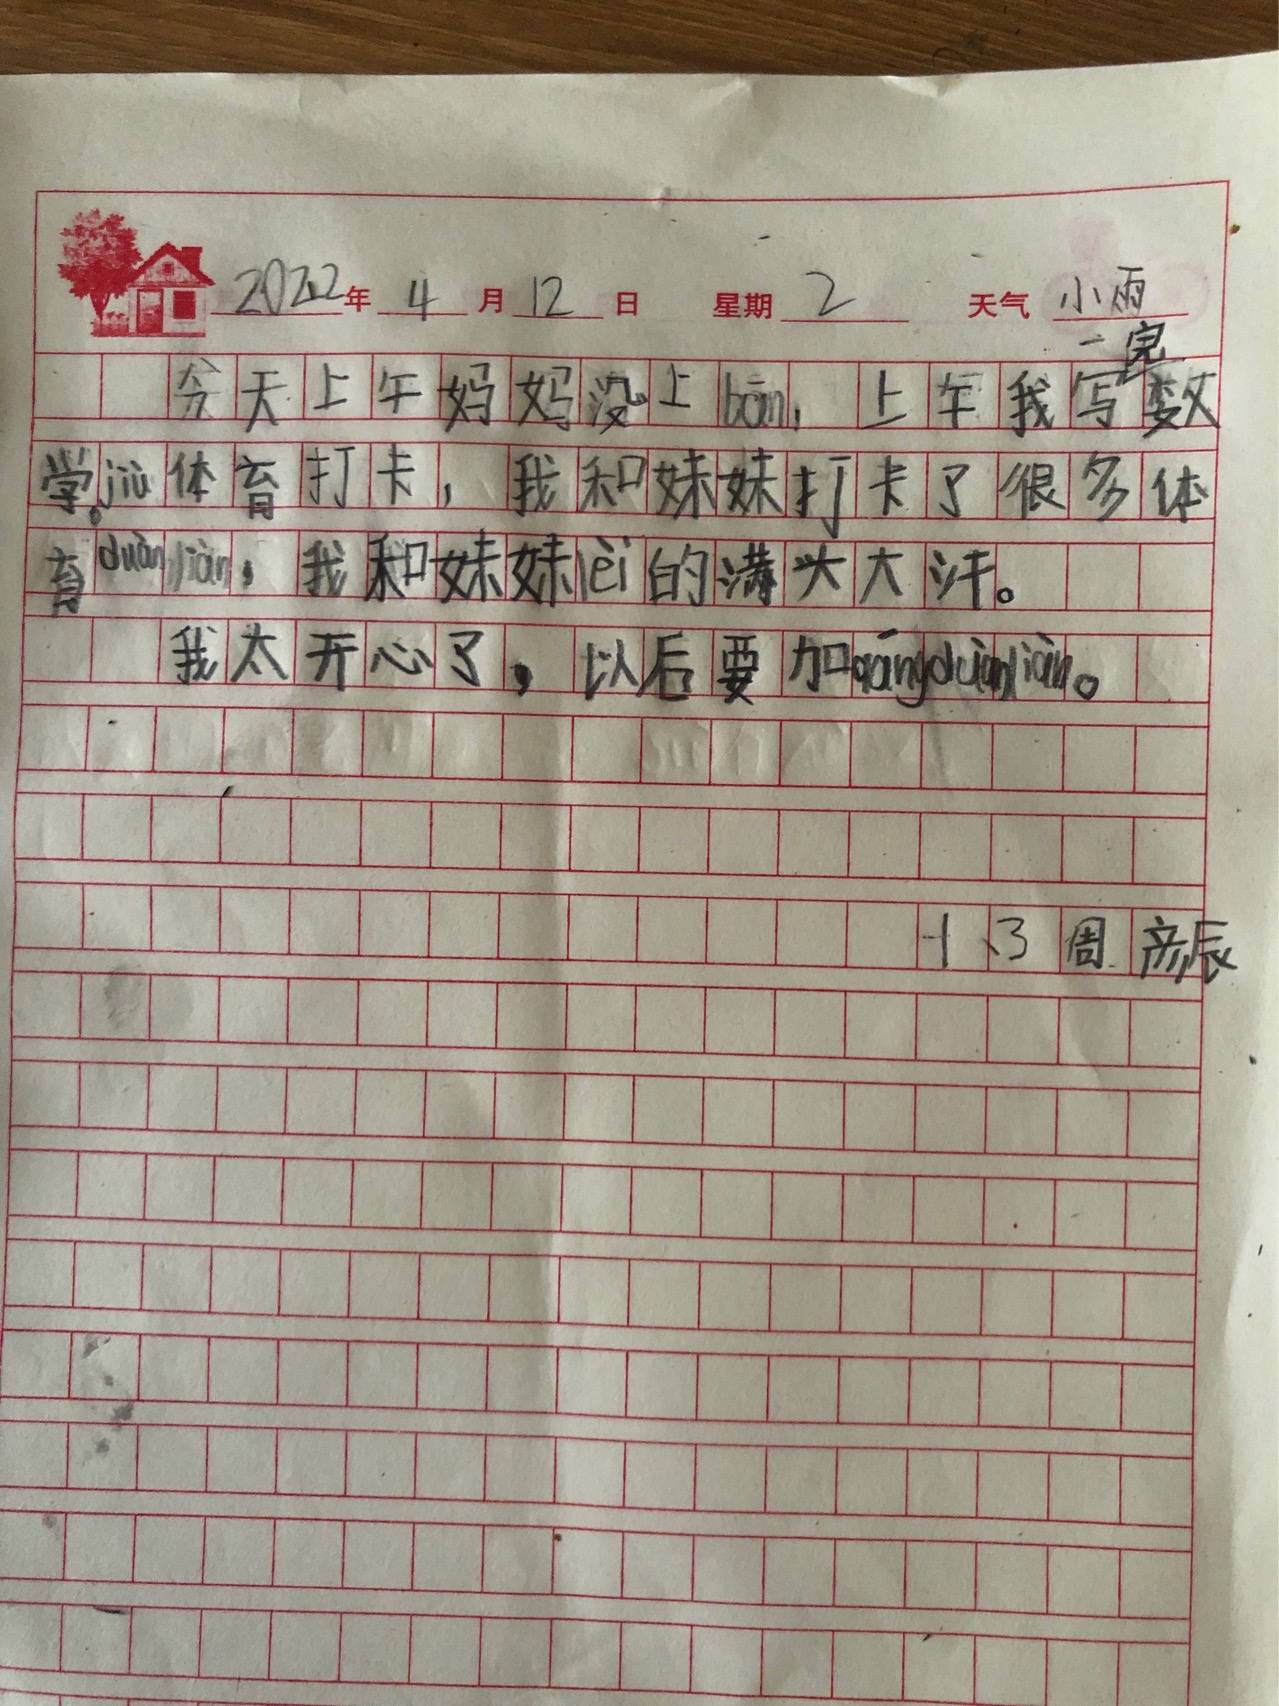 2022年 4月 12日 星期 2 天气 小雨
一完
今天上午妈妈没上bān，上午我写数
学jiù体育打卡，我和妹妹打卡了很多体
育duànliàn，我和妹妹lèi的满头大汗。
我太开心了，以后要加qángduànliàn。
1、3周彦辰